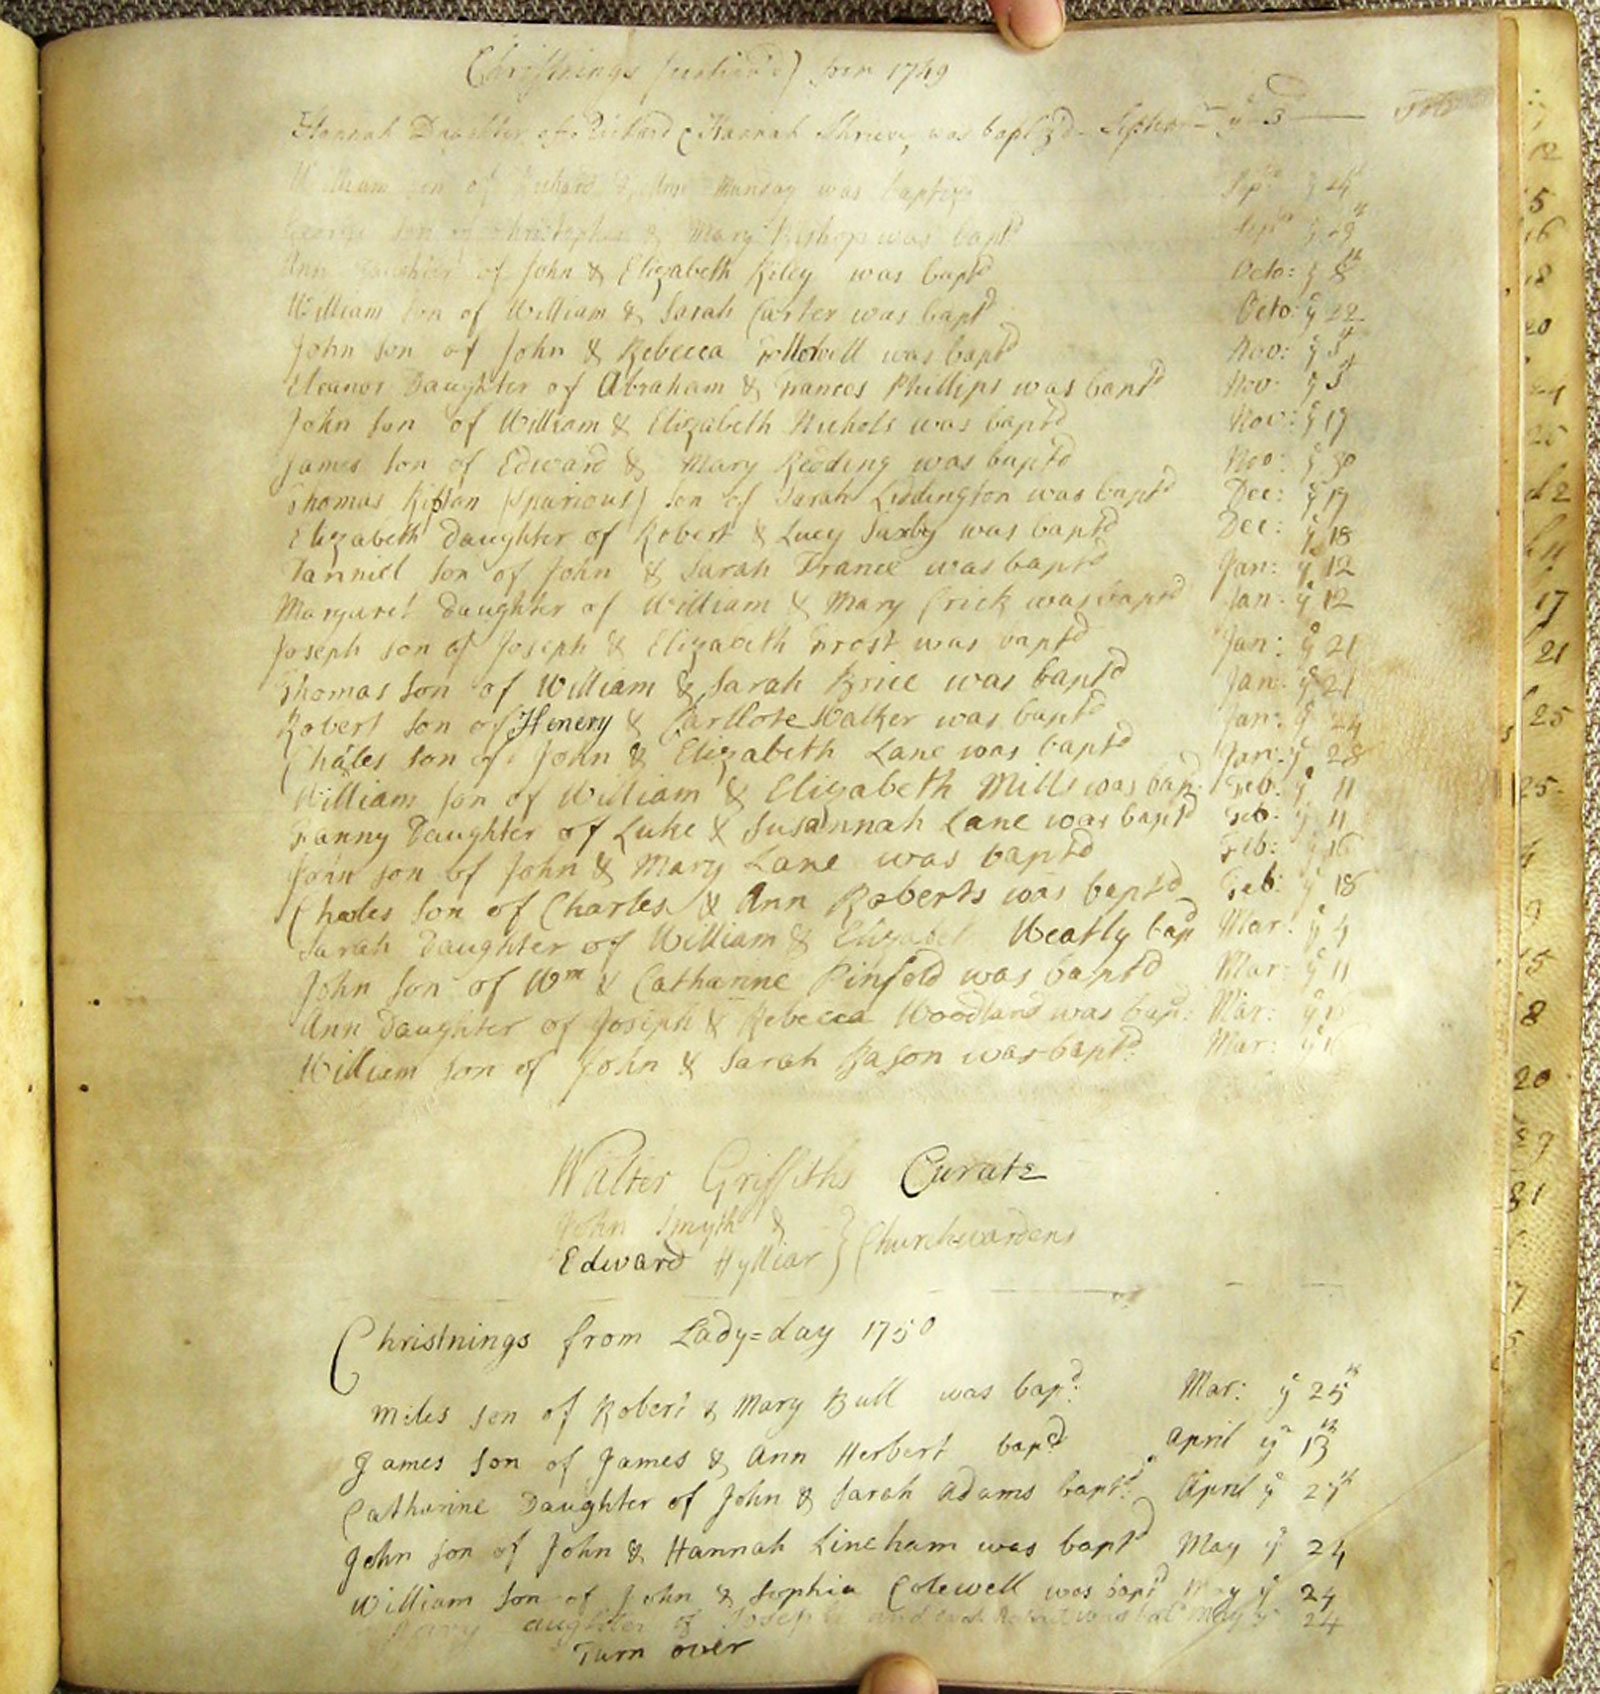 Christnings continued for 1749
Hannah Daughter of Richard & Hannah Shrieve, was baptz'd Septem ye 3
William son of Richard & Munday was baptiz'd Sep: ye 24
George son of Christopher & Mary Bishop was bapt'd Sept ye 29th
Ann Daughter of John & Elizabeth Kiley was bapt'd Octo: ye 8th
William son of William & Sarah Carter was bapt'd Octo: ye 22
John son of John & Rebecca was bapt'd Nov: ye 5th
Eleanor Daughter of Abraham & Frances Phillips was bapt'd Nov: ye 5th
John son of William & Elizabeth Nichols was bapt'd Nov: ye 19
James son of Edward & Mary Reding was bapt'd Nov: ye 30
Thomas (Spurious) son of Sarah Liddington was bapt'd Dec: ye 17
Elizabeth Daughter of Robert & Lucy Saxby was bapt'd Dec: ye 18
son of John & Sarah France was bapt'd Jan: ye 12
Margaret Daughter of William & Mary Crick was bapt'd Jan: ye 12
Joseph son of Joseph & Elizabeth Frost was bapt'd Jan: ye 21
Thomas son of William & Sarah Brice was bapt'd Jan: ye 21
Robert son of Henery & Carllote Walker was bapt'd Jan: ye 24
Chales son of John & Elizabeth Lane was bapt'd Jan: ye 28
William son of William & Elizabeth Mills was bap Feb: ye 11
Fanny Daughter of Luke & Susannah Lane was bapt'd Feb: ye 11
John son of John & Mary Lane was bapt'd Feb: ye 16
Chales son of Charles & Ann Roberts was bapt'd Feb: ye 18
Sarah Daughter of William & Elizabet Weatly bap Mar: ye 4
John son of Wm & Catharine Pinfold was bapt'd Mar: ye 11
Ann Daughter of Joseph & Rebecca Woodland was bap: Mar: ye
William son of John & Sarah Bason was bapt'd: Mar: ye
Walter Griffiths Curate
John Smyth &
Edward Hylliar } Churchwardens
Christnings from Lady=day 1750
Miles son of Robert & Mary Bull was bap'd: Mar: ye 25th
James son of James & Ann Herbert bap'd April ye 13th
Catharine Daughter of John & Sarah Adams bapt'd: April ye 27th
John son of John & Hannah Lineham was bapt'd May ye 24
William son of John & Sophia Colewell was bapt'd May ye 24
aughter of Joseph and was bat May ye 24
Turn over
12
5
16
18
20
24
25
17
21
25
25
4
9
15
8
20
29
31
7
5